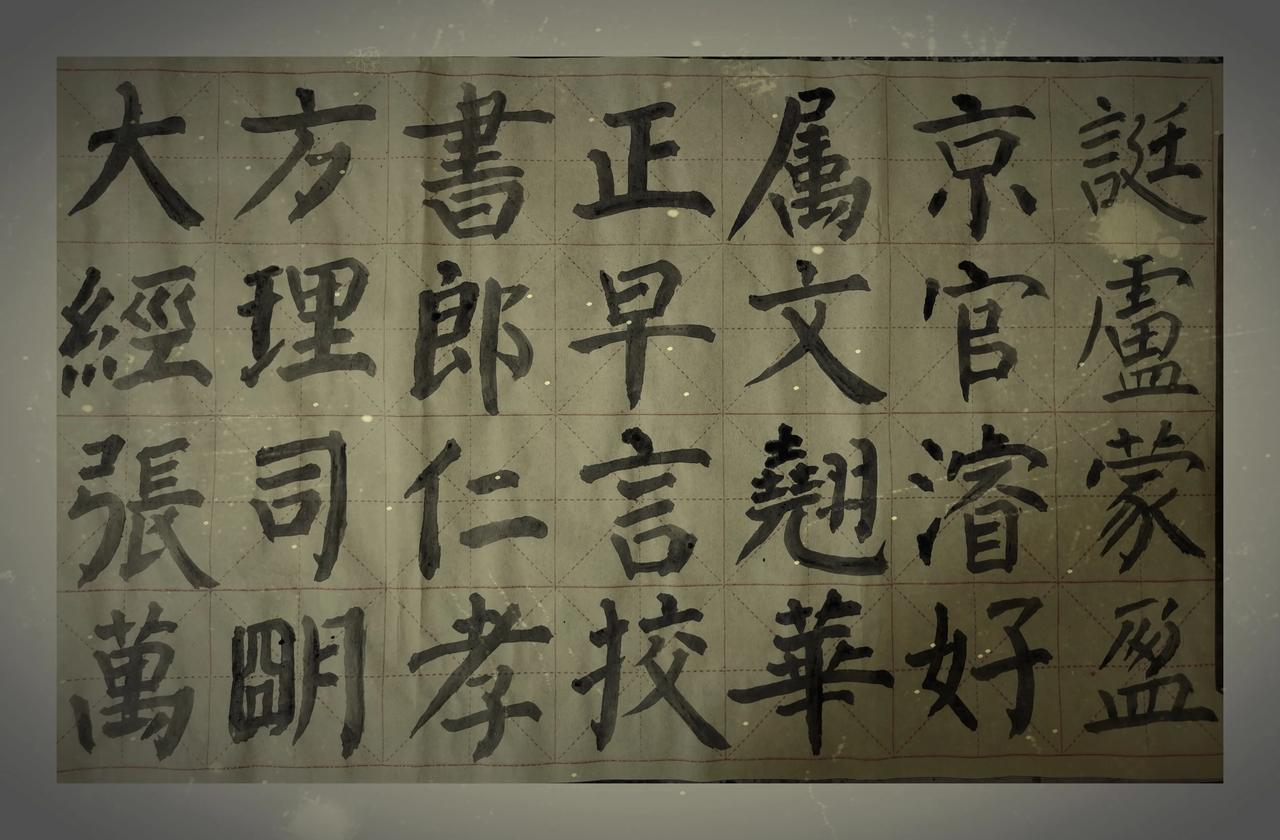 誕盧蒙盈
京官濬好
属文翹華
正早言挍
書郎仁孝
方理司朙
大經張萬